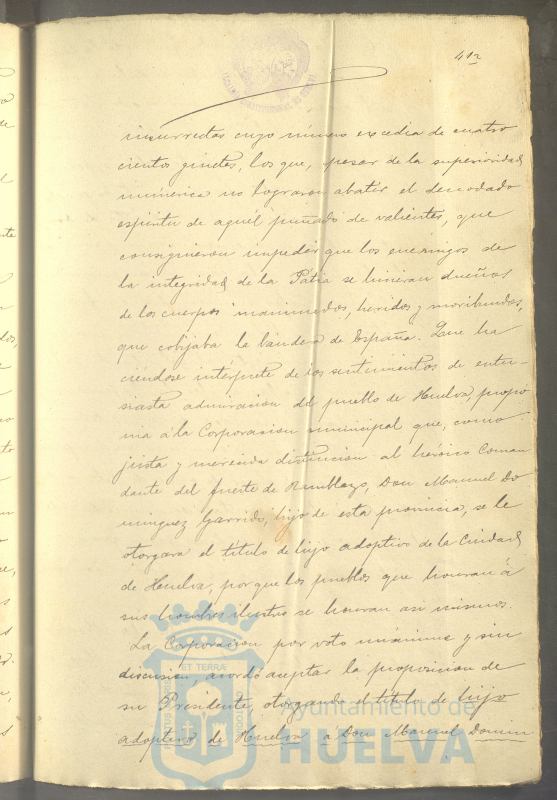 412
insurrectos cuyo número excedia de cuatro
cientos ginetes, los que, pesar de la superioridad
númerica no lograron abatir el denodado
espiritu de aquél puñado de valientes, que
consiguieron impedir que los enemigos de
la integridad de la Pátria se hicieran dueños
de los cuerpos inanimados, heridos y moribundos,
que cobijaba la bandera de España. Que ha
ciéndose intérprete de los sentimientos de entu-
siasta admiracion del pueblo de Huelva, propo
nia á la Corporacion municipal que, como
justa y merecida distincion al heróico Coman
dante del fuerte de Ramblazo, Don Manuel Do
minguez Garrido, hijo de esta provincia, se le
otorgara el título de hijo adoptivo de la Ciudad
de Huelva, porque los pueblos que honran á
sus hombres ilustres se honran asi mismos.
La Corporacion por voto unánime y sin
discusion, acordó aceptar la proposicion de
su Presidente, otorgando el título de hijo
adoptivo de Huelva á Don Manuel Domin
Ayuntamiento de
HUELVA
ET TERRÆ